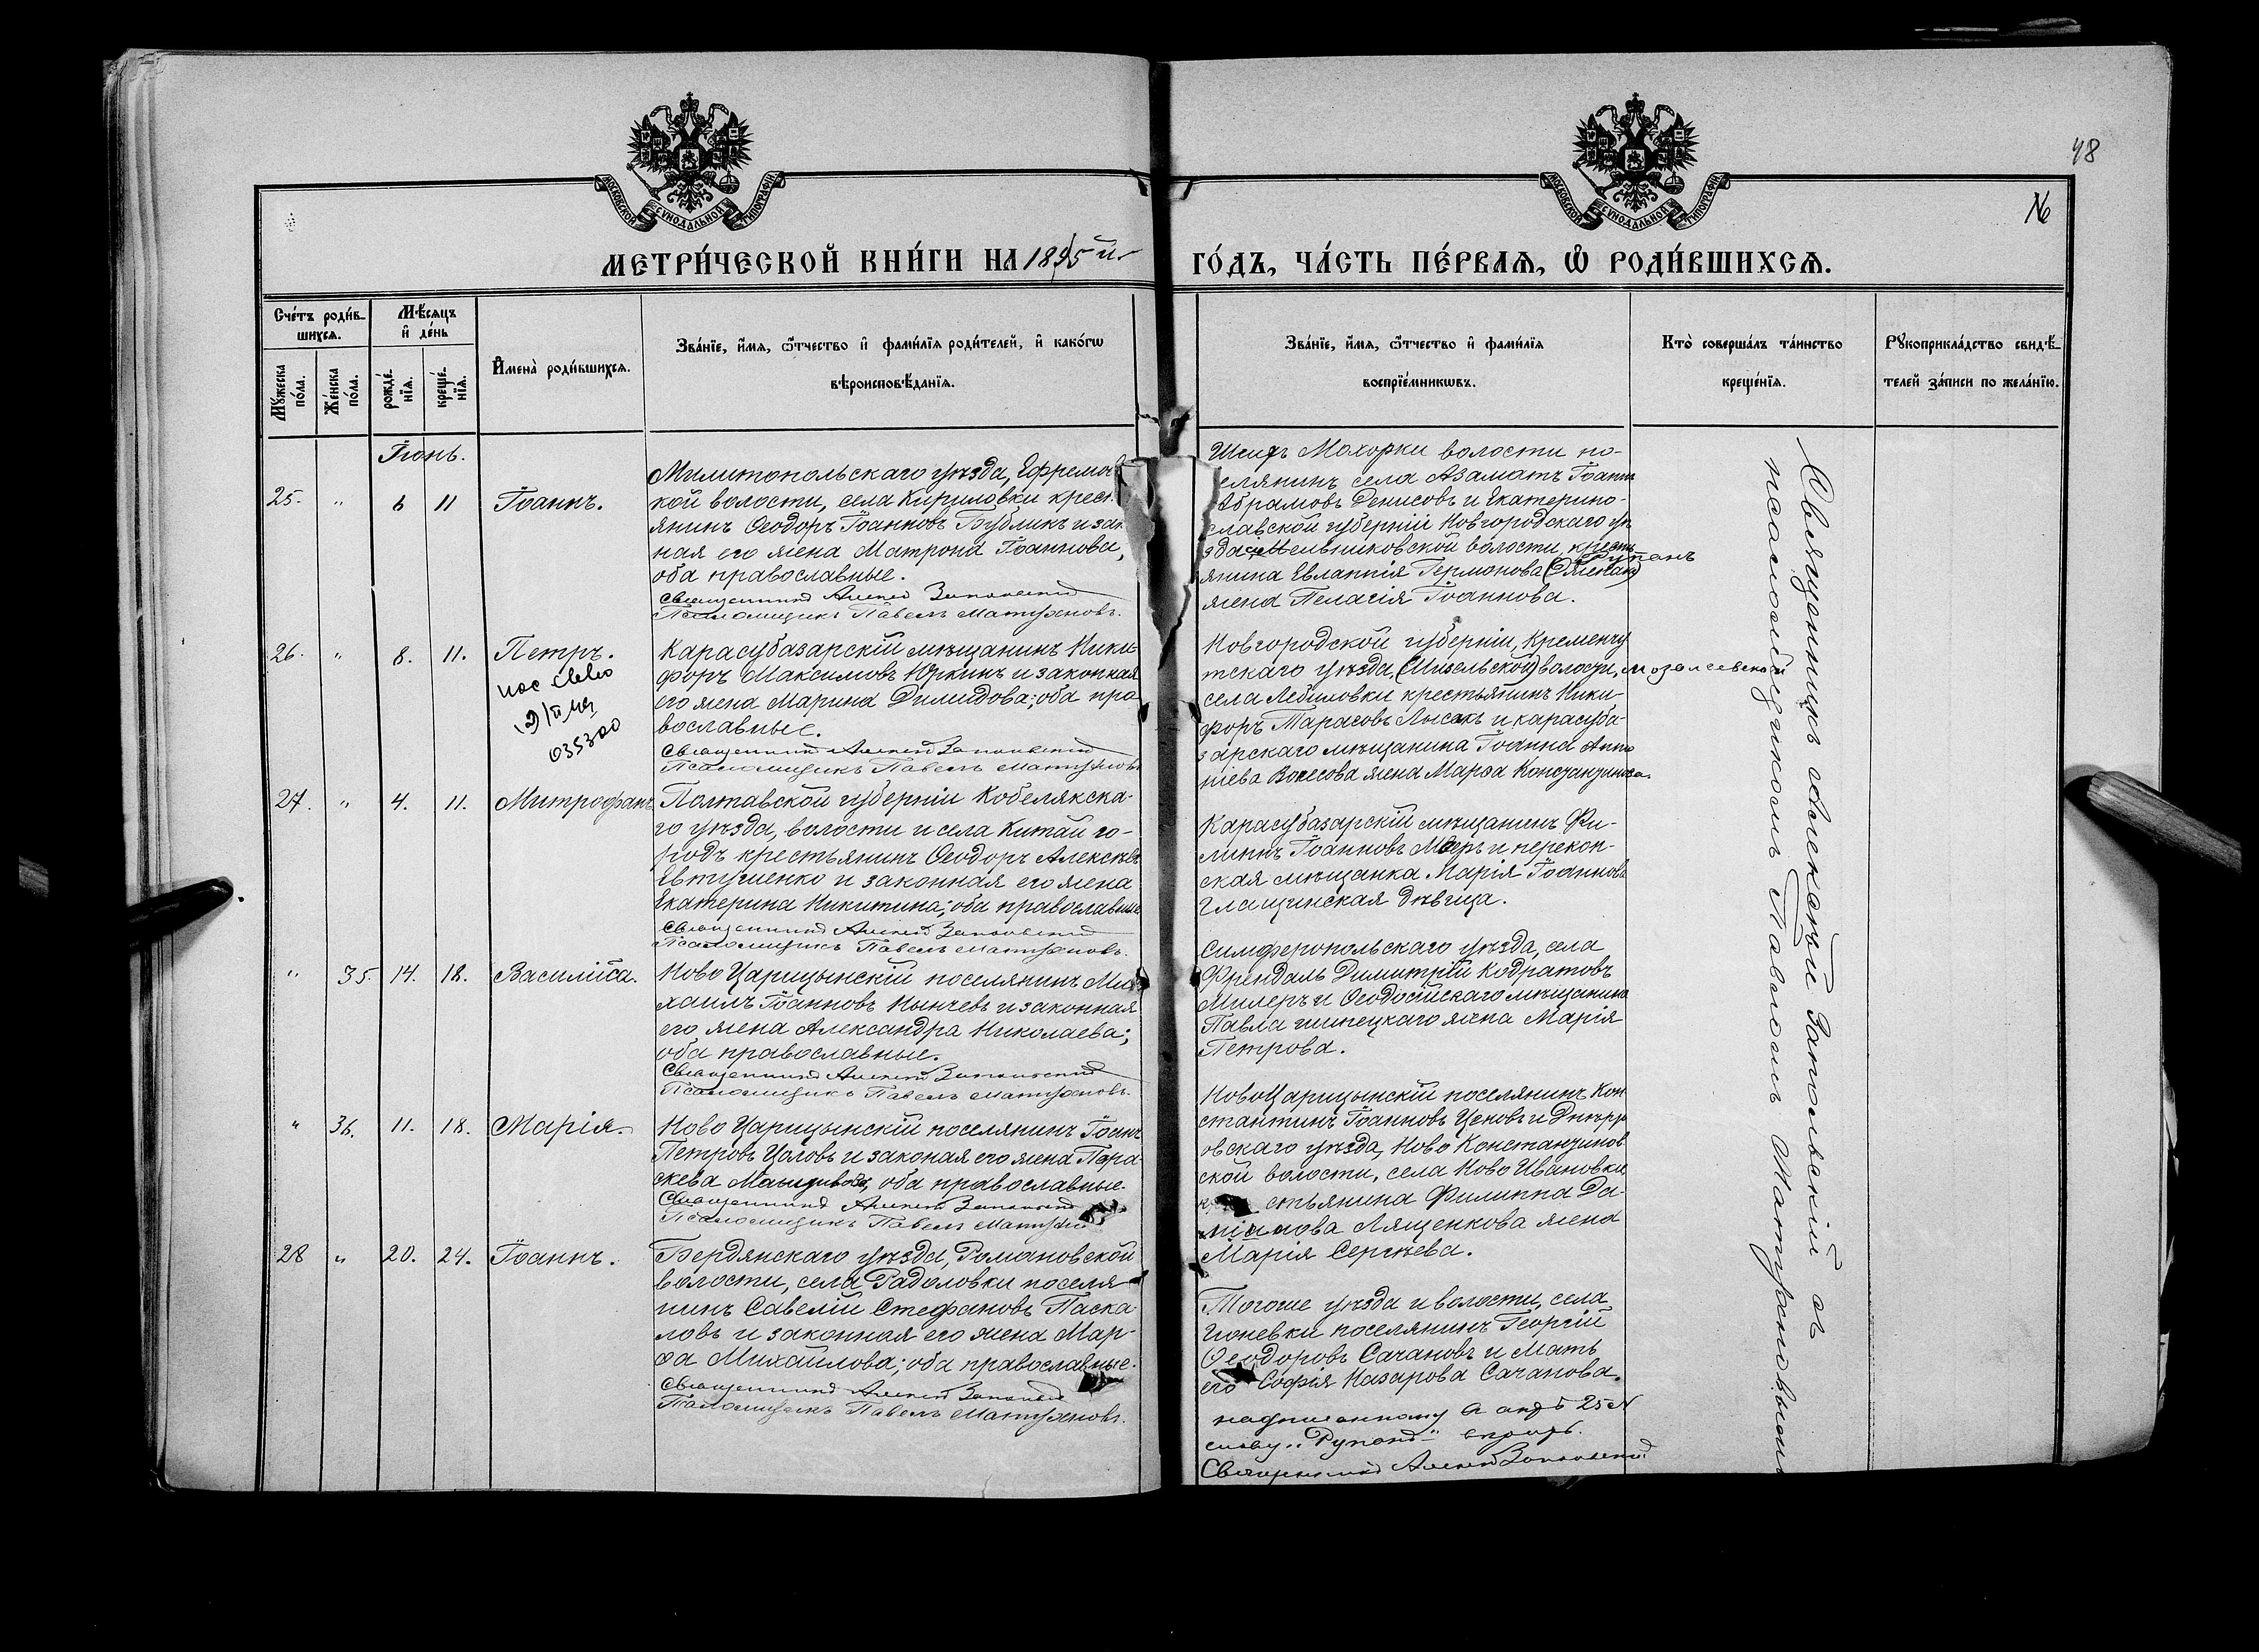 48
№
МОСКОВСКОЙ СУНОДАЛЬНОЙ ТИПОГРАФІИ
МОСКОВСКОЙ СУНОДАЛЬНОЙ ТИПОГРАФІИ
МЕТРИ́ЧЕСКОЙ КНИ́ГИ НА 1895 й
ГО́ДЪ, ЧА́СТЬ ПЕ́РВАѦ, Ѿ РОДИ́ВШИХСѦ.
Сче́тъ роди́в-
шихсѧ.
Мѣ́сѧцъ
и҆ де́нь
Мꙋ́жеска
по́ла.
Же́нска
по́ла.
рожде́-
нїѧ.
креще́-
нїѧ.
И҆мена̀ роди́вшихсѧ.
Зва́нїе, и҆́мѧ, ѻ҆́тчество и҆ фами́лїѧ роди́телей, и҆ како́гѡ
вѣроисповѣ́данїѧ.
Зва́нїе, и҆́мѧ, ѻ҆́тчество и҆ фами́лїѧ
воспрїе́мникѡвъ.
Кто̀ соверша́лъ та́инство
креще́нїѧ.
Рꙋкоприкла́дство свидѣ́-
телей за́писи по жела́нїю.
Іюнь.
25. " 6 11 Іоаннъ.
Милитопольскаго уѣзда, Ефремов
кой волости, села Кириловки крест
янинъ Ѳеодоръ Іоанновъ Бубликъ и зак
ная его жена Матрона Іоаннова,
оба православные.
Священникъ Алексей Запольский
Псаломщикъ Павелъ Матухновъ.
Махорки волости по-
селянинъ села Азаматъ Іоаннъ
Абрамовъ Денисовъ и Екатерино-
славской губерніи Новгородскаго уѣ
зда Мельниковской волости, кресть
янина Евлампія Германова
жена Пелагія Іоаннова.
26. " 8. 11. Петръ.
035300
Карасубазарскій мѣщанинъ Ники-
форъ Максимовъ Юркинъ и законная
его жена Марина Димидова; оба пра-
вославные.
Священникъ Алексей Запольский
Псаломщикъ Павелъ Матухновъ
Новгородской губерніи, Кременчу
гскаго уѣзда, волости,
села крестьянинъ Ники-
форъ Тарасовъ Лысакъ и карасуба-
зарскаго мѣщанина Іоанна
жена Марѳа Константинова.
27. " 4. 11. Митрофанъ
Полтавской губерніи Кобелякска-
го уѣзда, волости и села Китай го-
родъ крестьянинъ Ѳеодоръ Алексѣевъ
Евтушенко и законная его жена
Екатерина Никитина; оба православные
Священникъ Алексей Запольский
Псаломщикъ Павелъ Матухновъ.
Карасубазарскій мѣщанинъ Фи-
липпъ Іоанновъ и перекоп-
ская мѣщанка Марія Іоаннова
Глащинская дѣвица.
" 35. 14. 18. Василіса.
Ново Царицынскій поселянинъ Ми-
хаилъ Іоанновъ Нынчевъ и законная
его жена Александра Николаева;
оба православные.
Священникъ Алексей Запольский
Псаломщикъ Павелъ Матухновъ.
Симферопольскаго уѣзда, села
Фриндаль Димитрій Кодратовъ
Милеръ и Ѳеодосійскаго мѣщанина
Павла жена Марія
Петрова.
" 36. 11. 18. Марія.
Ново Царицынскій поселянинъ Іоаннъ
Петровъ Цоловъ и законая его жена Пара-
скева оба православные.
Священникъ Алексей Запольский
Псаломщикъ Павелъ
Ново Царицынскій поселянинъ Кон
стантинъ Іоанновъ Ценовъ и Днѣпр
овскаго уѣзда, Ново Константинов
ской волости, села Ново Ивановки
стьянина Филиппа Да-
нова Лященкова жена
Марія Сергѣева.
28 " 20. 24. Іоаннъ.
Бердянскаго уѣзда, Романовской
волости, села Радоловки поселя
нинъ Савелій Стефановъ Паска-
ловъ и законная его жена Мар-
ѳа Михайлова; оба православные.
Священникъ Алексей
Псаломщикъ Павелъ Матухновъ.
Тогоже уѣзда и волости, села
Гюневки поселянинъ Георгій
Ѳеодоровъ Сачановъ и Мать
его Софія Назарова Сачанова.
надписанному в актѣ 25 №
слову „Рупанъ" вѣрить.
Священникъ Алексей Запольский
Священникъ Алексѣй Запольскій съ
псаломщикомъ Павломъ Матухновымъ